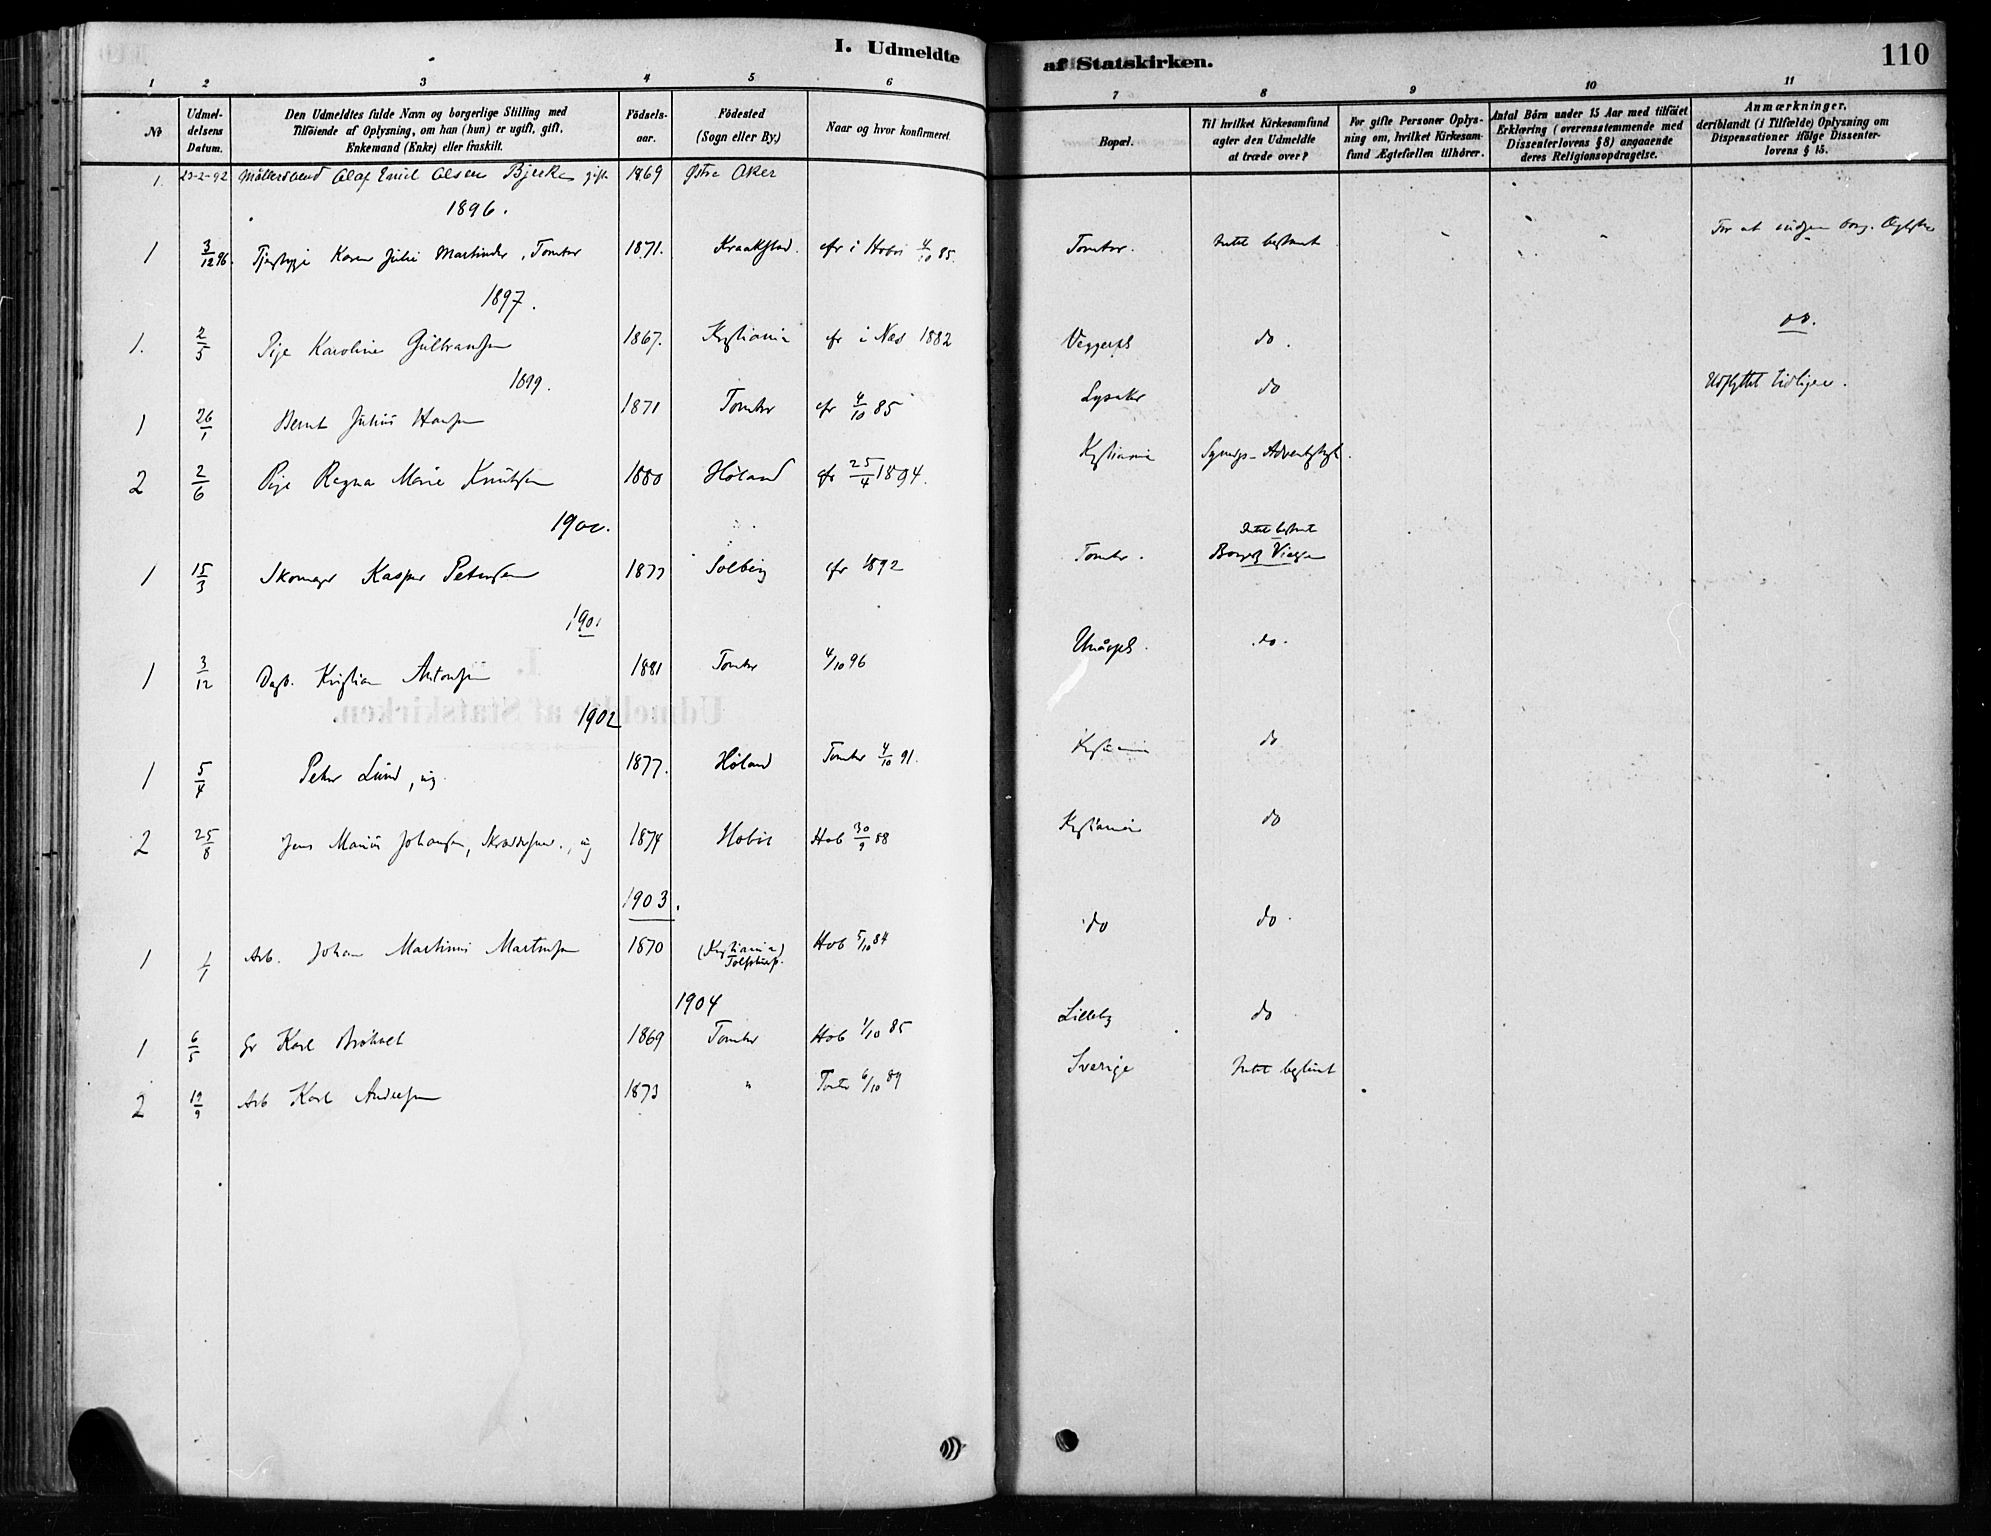 I. Udmeldte af Statskirken. 110
1 2 3 4 5 6 7 8 9 10 11
№ | Udmeldelsens Datum. | Den Udmeldtes fulde Navn og borgerlige Stilling med Tilföiende af Oplysning, om han (hun) er ugift, gift, Enkemand (Enke) eller fraskilt. | Födselsaar. | Födested (Sogn eller By.) | Naar og hvor konfirmeret. | Bopæl. | Til hvilket Kirkesamfund agter den Udmeldte at træde over? | For gifte Personer Oplysning om, hvilket Kirkesamfund Ægtefællen tilhörer. | Antal Börn under 15 Aar med tilföiet Erklæring (overensstemmende med Dissenterlovens § 8) angaaende deres Religionsopdragelse. | Anmærkninger, deriblandt (i Tilfælde) Oplysning om Dispensationer ifölge Dissenterlovens § 15.
1. 23-2-92 Möllersvend Olaf Emil Olsen Bjerke gift 1869 Østre Aker
1896.
1 3/12 96. Karen Julie Martinder, Tomter 1871. Kraakstad. cfr i Hobøl 4/10 85. Tomter. Intet bestemt For at indgaa borg. Ægtesk
1897.
1. 2/5 Pige Karoline Gulbransen 1867. Kristiania cfr i Næs 1882 do. do.
1899.
1 26/1 Bernt Julius Hansen 1871 Tomter cfr 4/10 85 Lysaker do Udflyttet tidligere.
2 2/6 Pige Ragna Marie Knutsen 1880 Høland cfr 25/4 1894. Kristiania
1900.
1 15/3 Skomager Kasper Petersen 1877 Solberg cfr 1892 Tomter. Intet bestemt Borgerlig Vielse
1901
1 3/12 Dagb. Kristian Antonsen 1881 Tomter 4/10 96 do.
1902
1 5/4 Peter Lund, ug 1877. Høland Tomter 4/10 91. Kristiania do
2 25/8 Jens Marius Johansen, Skræddersvend., ug 1874 Hobøl Hob 30/9 88 Kristiania do
1903.
1 1/1 Arb. Johan Martinus Martinsen 1870 (Kristiania) Hob 5/10 84 do do
1904
1 6/5 Karl Bröhaet 1869 Tomter Hob 1/10 85 Lilleby do
2 19/9 Arb Karl Andersen 1873 " Tomter 6/10 89 Sverige Intet bestemt